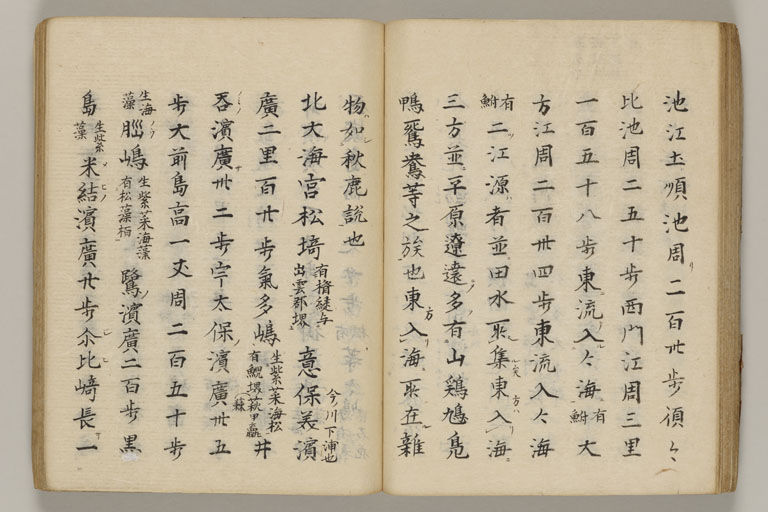 池江土順池周二百卅歩須々
比池周二五十歩西門江周三里
一百五十八歩東流入々海有鮒大
方江周二百卅四歩東流入々海
有鮒二江源者並田水所集東入海
三方並平原遼遠多有山鶏鳩鳬
鴨鴛鴦等之族也東入海所在雜
物如秋鹿説也
北大海宮松埼有楯縫与出雲郡堺意保美濱今川下浦也
廣二里百廿歩氣多嶋生紫菜海松有鰒甲蠃井
呑濱廣卅二歩宇太保濱廣卅五
歩大前島高一丈周二百五十歩
生海藻脳嶋生紫菜海藻有松藻栢鷺濱廣二百歩黒
島生紫藻米結濱廣廿歩尒比﨑長一